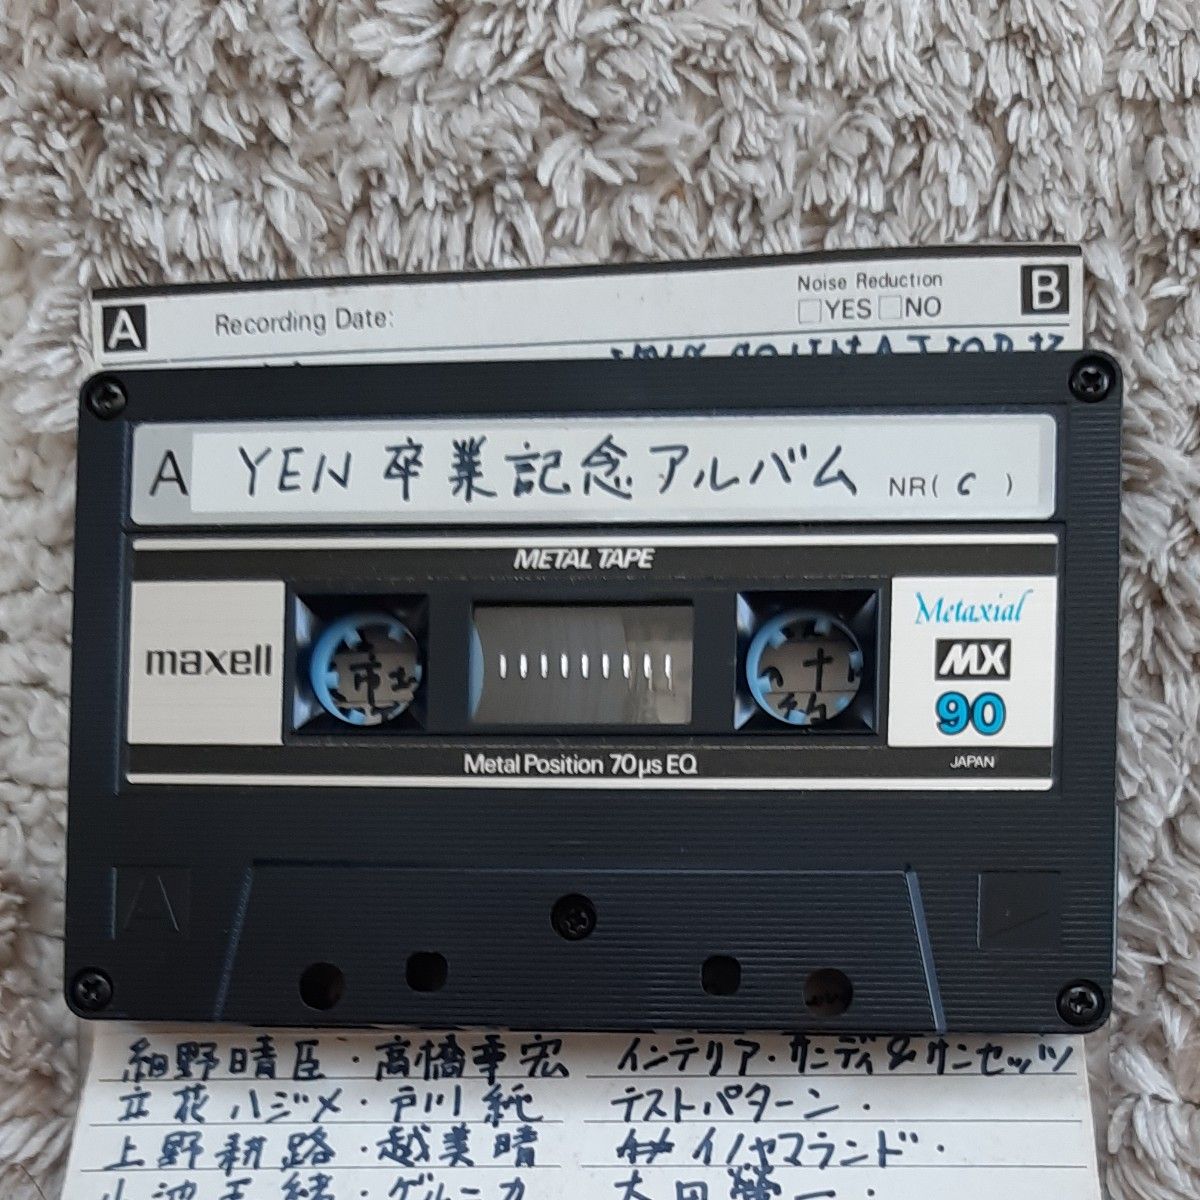 A
Recording Date:
Noise Reduction
YES NO
B
A YEN 卒業記念アルバム NR( C )
METAL TAPE
maxell
Metaxial
MX
90
Metal Position 70μs EQ
JAPAN
A
細野晴臣・高橋幸宏 インテリア・サンディ&サンセッツ
立花ハジメ・戸川純 テストパターン・
上野耕路・越美晴 イノヤマランド・
小池玉緒・ゲルニカ